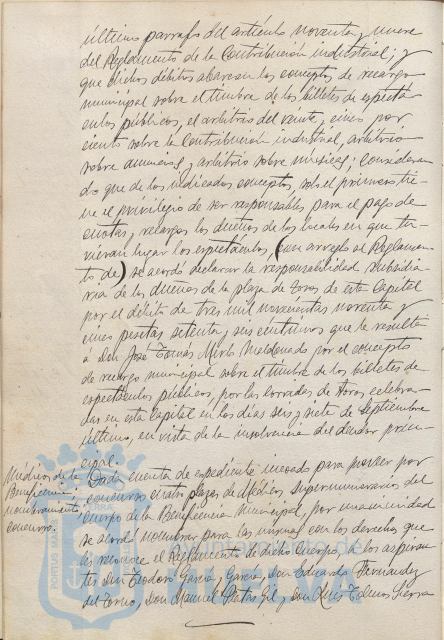 último párrafo del artículo noventa y nueve
del Reglamento de la Contribución industrial; y
que dichos débitos abarcan los conceptos de recargo
municipal sobre el timbre de los billetes de espectá-
culos públicos, el arbitrio del veinte y cinco por
ciento sobre la Contribución industrial, arbitrio
sobre anuncios, y arbitrio sobre músicas; consideran-
do que de los indicados conceptos, solo el primero tie-
ne el privilegio de ser responsables para el pago de
cuotas y recargos los dueños de los locales en que tu-
vieran lugar los espectáculos, (con arreglo al Reglamen-
to de) se acordó declarar la responsabilidad subsidia-
ria de los dueños de la plaza de toros de esta Capital
por el débito de tres mil novecientas noventa y
cinco pesetas setenta y seis céntimos que le resulta
a Don José Tomás Maldonado por el concepto
de recargo municipal sobre el timbre de los billetes de
espectáculos públicos, por las corridas de toros celebra-
das en esta Capital en los días seis y siete de Septiembre
último, en vista de la insolvencia del deudor prin-
cipal.
Médicos de la
Beneficencia
nombramiento
concurso.
Dada cuenta de expediente incoado para proveer por
concurso cuatro plazas de Médicos supernumerarios del
Cuerpo de la Beneficencia Municipal, por unanimidad
se acordó nombrar para las mismas con los derechos que
les reconoce el Reglamento de dicho Cuerpo, a los aspiran-
tes Don Teodoro García y García, Don Eduardo Fernández
del Torno, Don Manuel Gil, y Don Luis Sierra